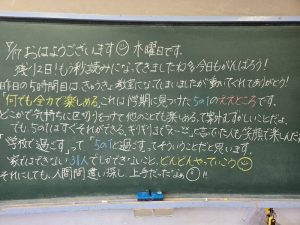 7/17 おはようございます 木曜日です。
残り2日!もう秒読みになってきましたね。今日もがんばろう!
昨日の5時間目はきゅうきょ教室になってしまいましたが動いてくれてありがとう!
「何でも全力で楽しめる」これは1学期に見つけた5の1のステキなところです。
どこかで気持ちに区切りをつけて他のことでも楽しめるって案外むずかしいことだよ。
でも5の1はすぐそれができる。
「学校で過ごす」って“5の1で過ごす”ってそういうことだと思います。
家ではできない31人でしかできないこと、どんどんやっていこう
それにしても、人間間違い探し、上手だったなぁ!!